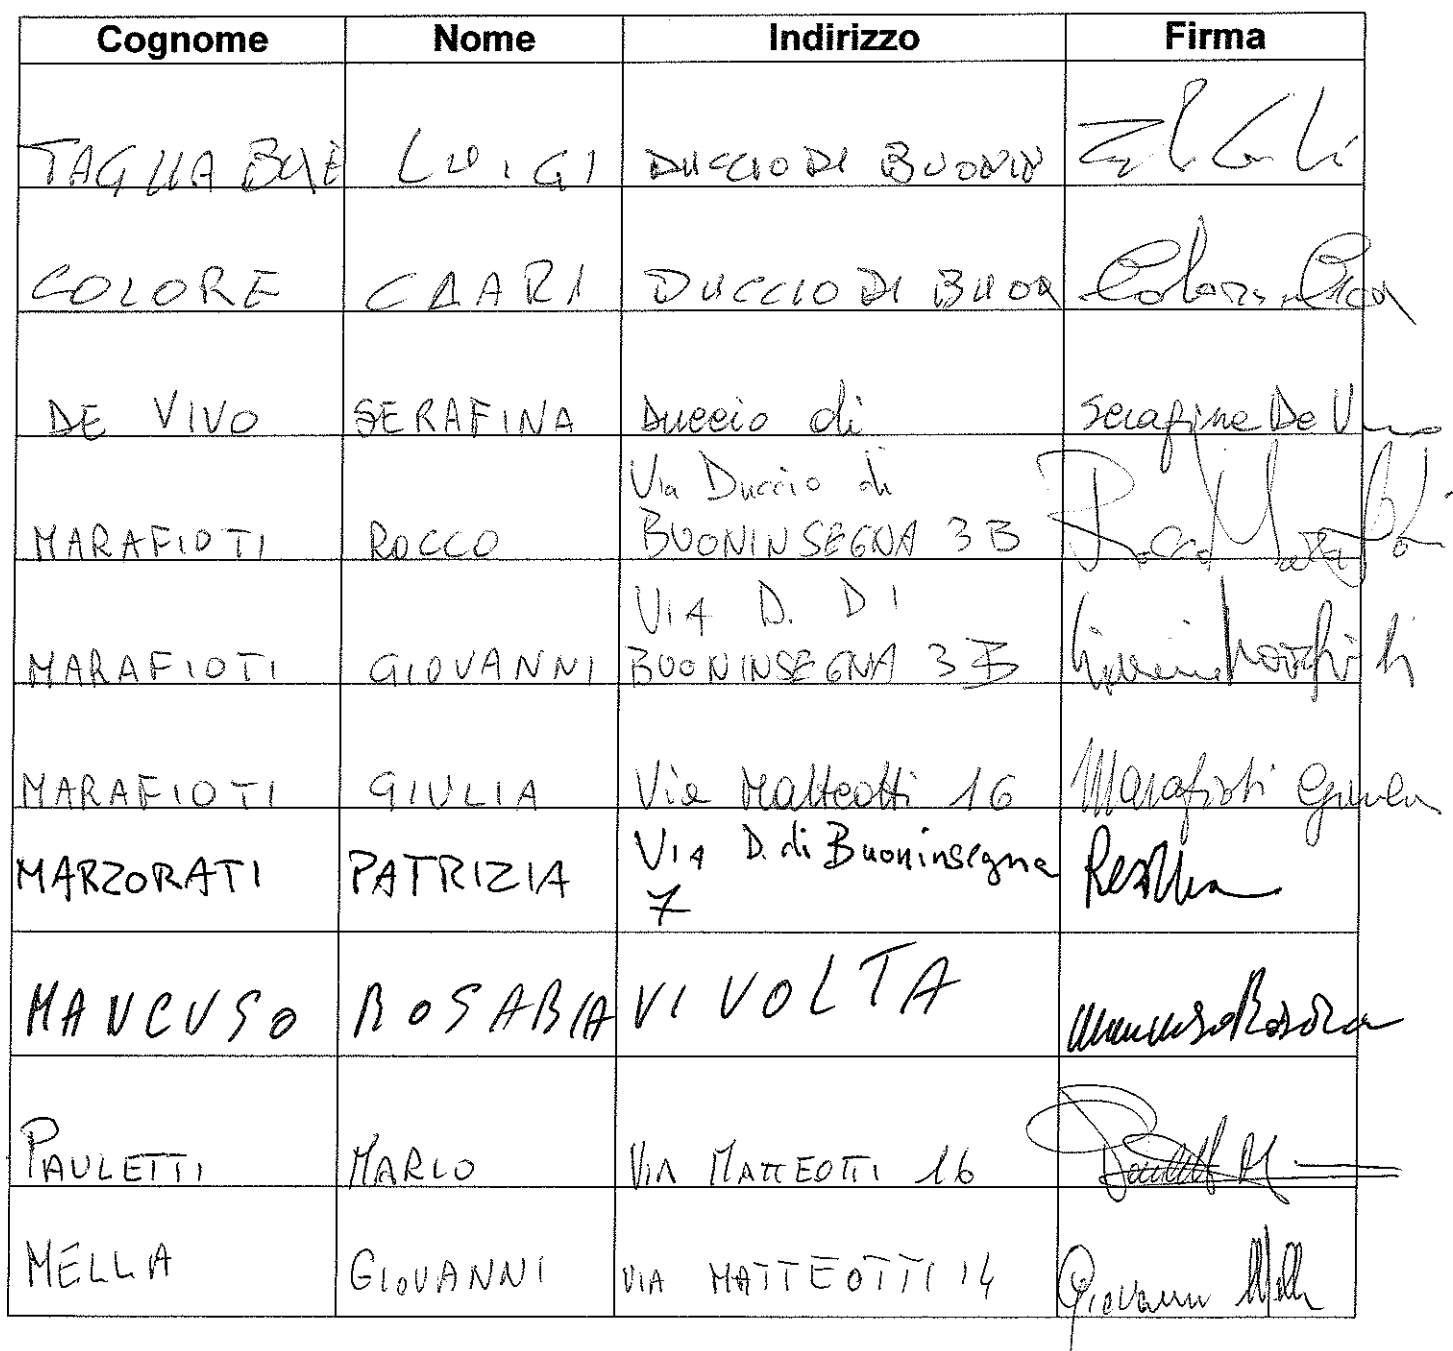 Cognome Nome Indirizzo Firma
TAGLIABUE LUIGI DUCCIO DI BUONIN
COLORE CAARI DUCCIO DI BUON
DE VIVO SERAFINA Duccio di Serafina De V
Via Duccio di
MARAFIOTI ROCCO BUONINSEGNA 3B Rocco Marafioti
VIA D. DI
MARAFIOTI GIOVANNI BUONINSEGNA 3B Giovanni Marafioti
MARAFIOTI GIULIA Via Matteotti 16 Marafioti Giulia
MARZORATI PATRIZIA VIA D. di Buoninsegna
7
MANCUSO ROSARIA VI VOLTA Mancuso Rosaria
PAULETTI MARCO VIA MATTEOTTI 16
MELLA GIOVANNI VIA MATTEOTTI 14 Giovanni Mella